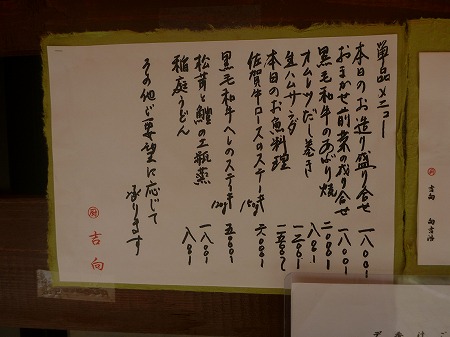 単品メニュー
本日のお造り盛り合せ 一八〇〇
おまかせ前菜の盛り合せ 一八〇〇
黒毛和牛のあぶり焼 二〇〇〇
オムレツだし巻き 八〇〇
生ハムサラダ 一二〇〇
本日のお魚料理 二五〇〇
佐賀牛ロースのステーキ 150g 六〇〇〇
黒毛和牛ヘレのステーキ 120g 五〇〇〇
松茸と鱧の土瓶蒸 一八〇〇
稲庭うどん 八〇〇
その他ご要望に応じて
承ります
吉向
吉向